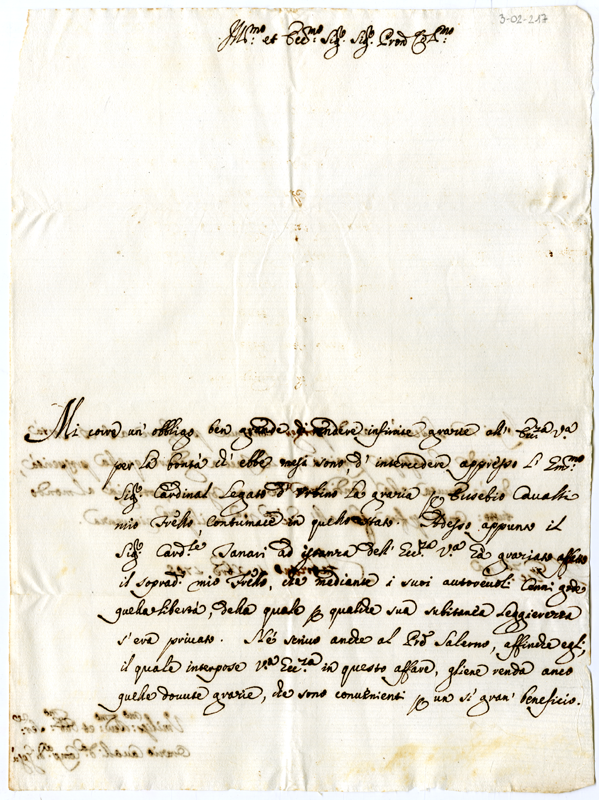 3-02-217
Ill.mo et Ecc.mo Sig.r Sig.r Pron Col.mo
Mi corre un' obbligo ben grande di rendere infinite grazie all' Ecc.za V.a
per la bontà ch' ebbe mesi sono d' intercedere appresso l' Em.mo
Sig.r Cardinal Legato d' Urbino la grazia p Eusebio Cavalli
mio Fr̃ello contumace in quello stato. Adesso appunto il
Sig.r Card.le Sanari ad istanza dell' Ecc.za V.a hà graziato affatto
il soprad.o mio Fr̃ello, che mediante i suoi autorevoli cenni gode
quella libertà, della quale p qualche sua subitanea leggierezza
s' era privato. Nè scrivo anche al Pre Salerno, affinche egli,
il quale interpose V.a Ecc.za in questo affare, gliene renda anco
quelle dovute grazie, che sono convenienti p un si gran' beneficio.